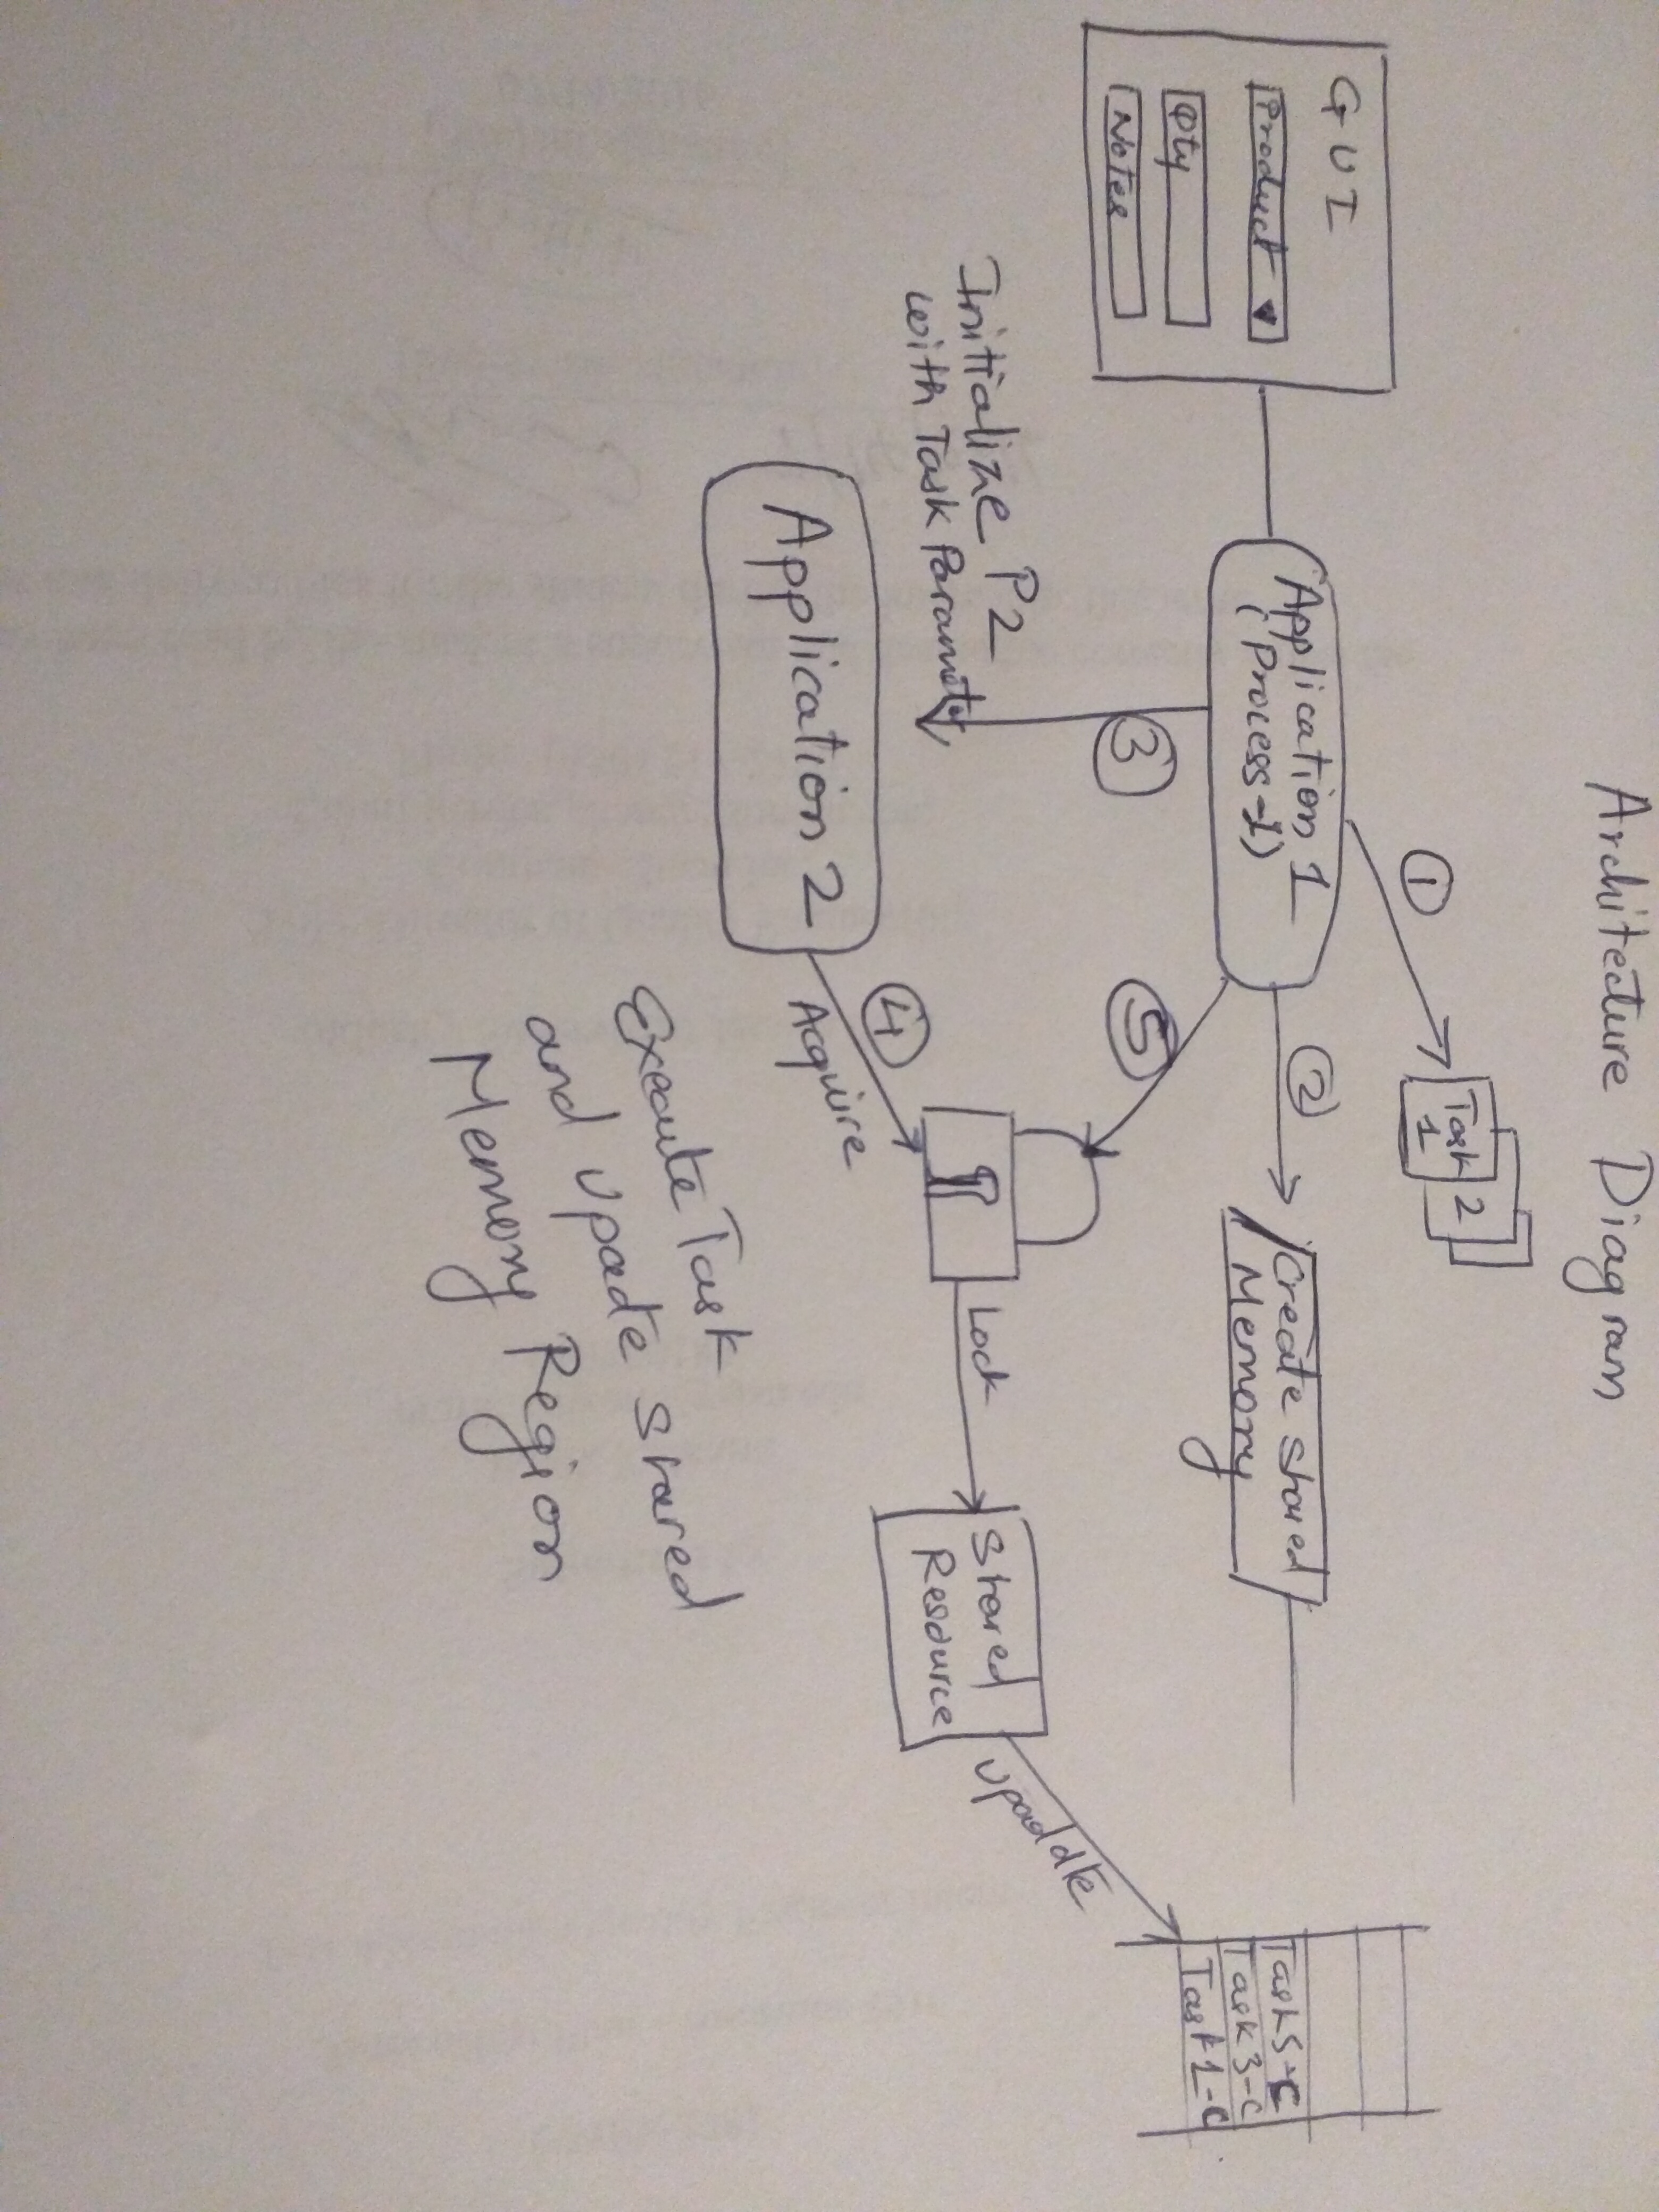 Architecture Diagram
GUI
Product
Qty
Notes
Application 1
(Process-1)
1
Task
1
2
2
Create shared
Memory
3
Initialize P2
with Task Parameter
5
4
Acquire
Application 2
Lock
Shared
Resource
Update
Task5-C
Task3-C
Task1-C
Execute Task
and update shared
Memory Region